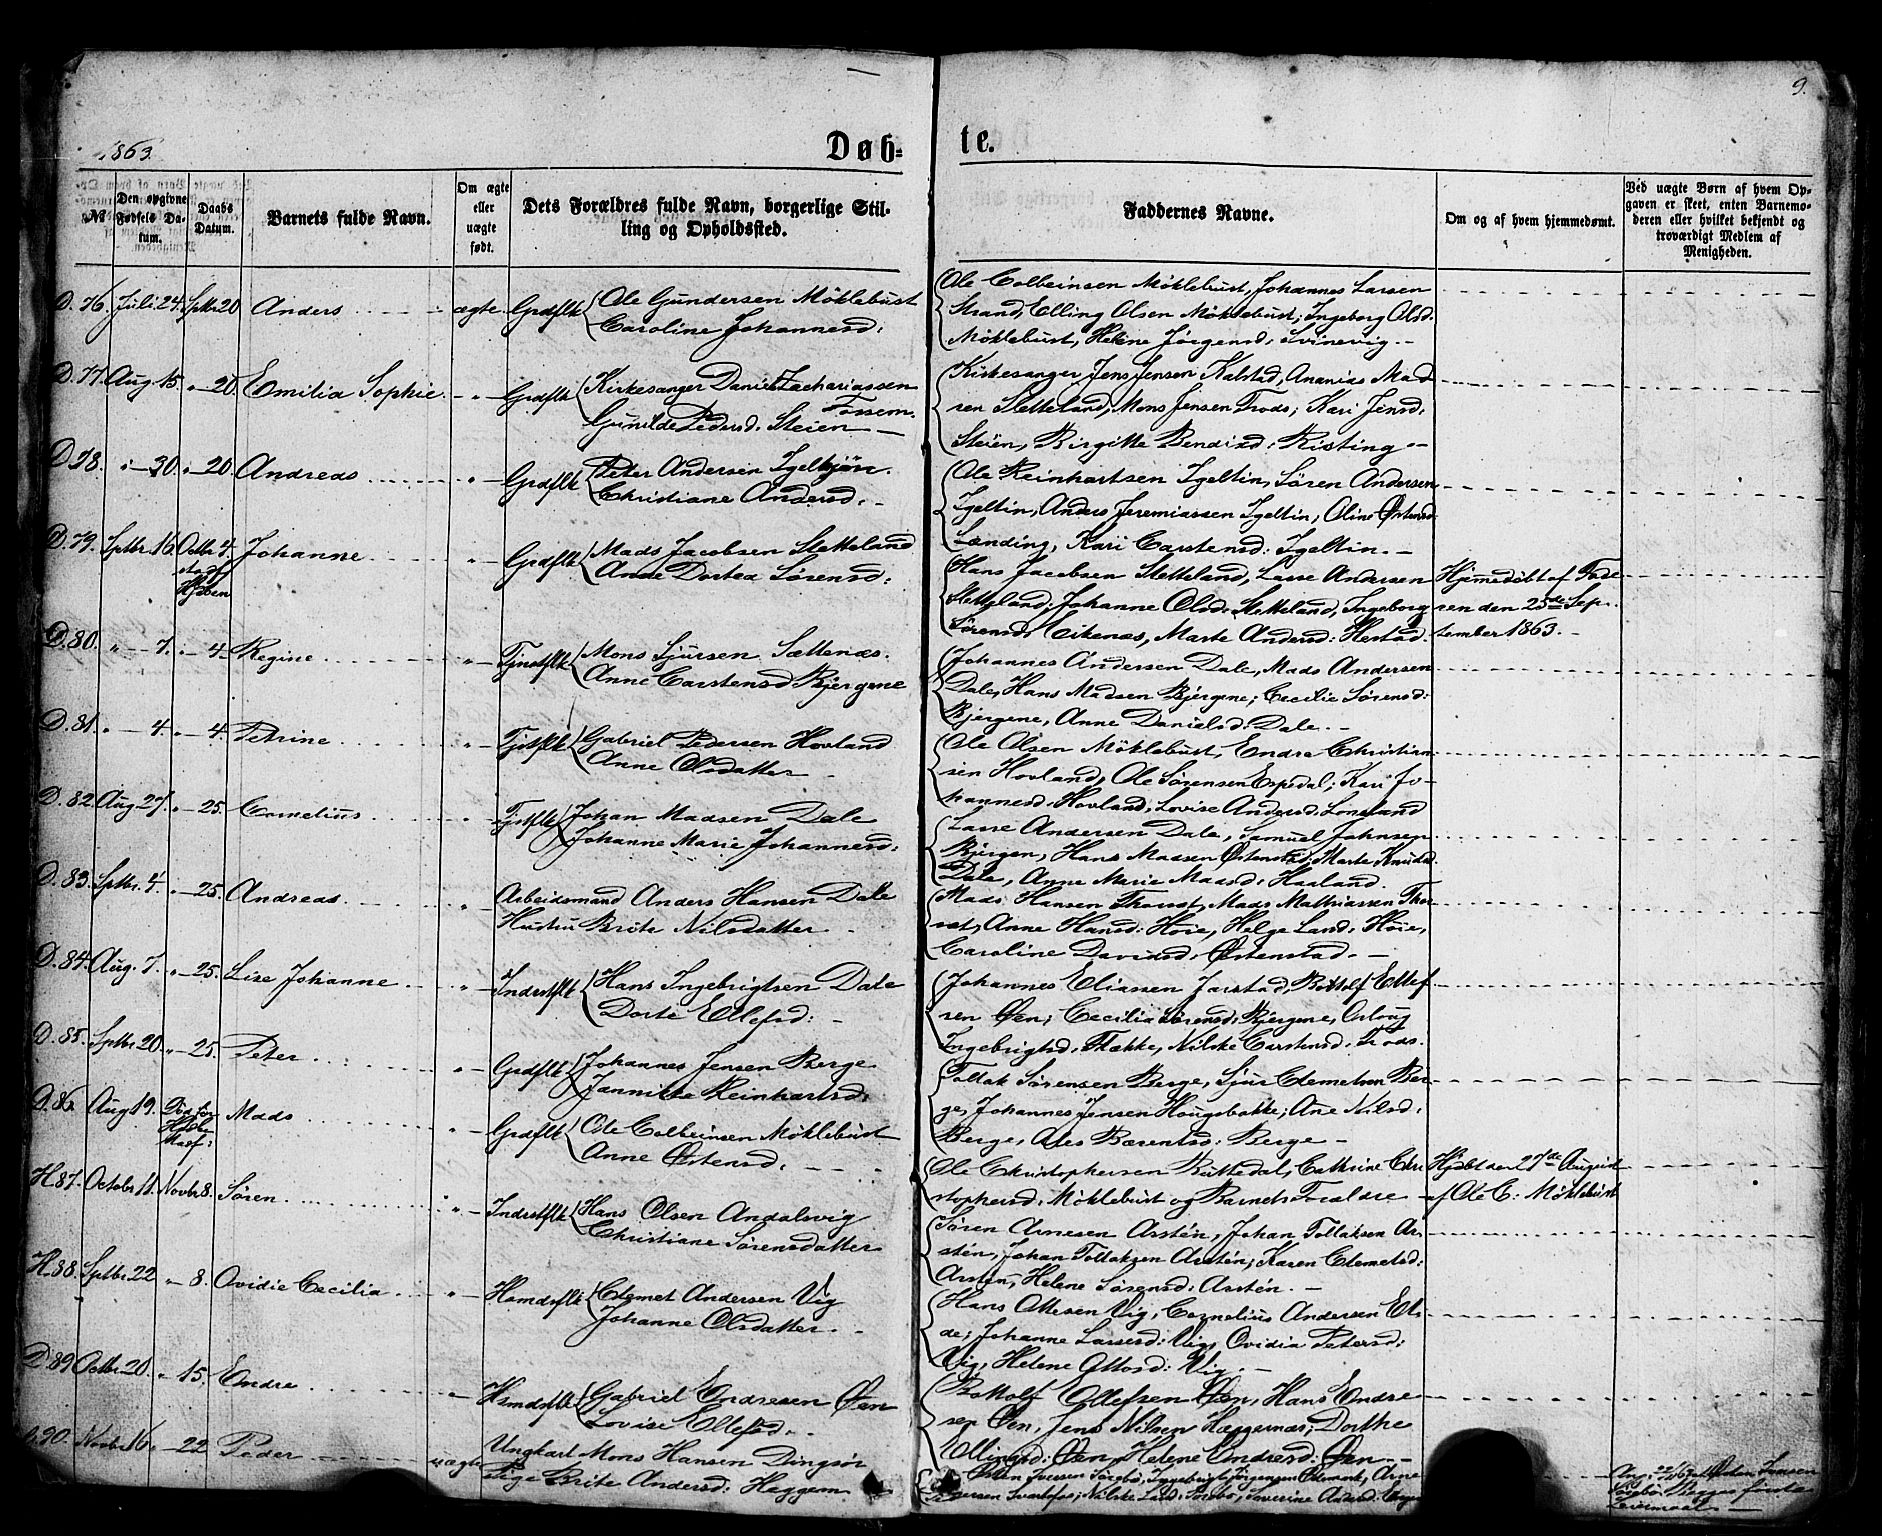 9.
1863.
Døb- te.
No
Den opgivne Fødsels Datum.
Daabs Datum.
Barnets fulde Navn.
Om ægte eller uægte født.
Dets Forældres fulde Navn, borgerlige Stilling og Opholdssted.
Faddernes Navne.
Om og af hvem hjemmedømt.
Ved uægte Børn af hvem Opgaven er skeet, enten Barnemoderen eller hvilket bekjendt og troværdigt Medlem af Menigheden.
D. 76. Juli 24. Sptbr 20 Anders ægte Grdflk Ole Gundersen Møklebust
Caroline Johannesd:
Ole Colbeinsen Møklebust, Johannes Larsen
Strand, Elling Olsen Møklebust; Ingeborg Olsd.
Møklebust, Helene Jørgensd: Svinevig.-
D. 77. Aug. 15. " 20 Emilia Sophie " Grdflk Kirkesanger Daniel Zachariassen
Fossem.
Gunilde Pedersd. Steien -
Kirkesanger Jens Jensen Kalstad, Ananias Mad
sen Sletteland, Mons Jensen Trods; Kari Jensd:
Steien, Birgitte Bendixd: Risting -
D. 78. " 30. " 20 Andreas " Grdflk Peter Andersen Igeltjøn.
Christiane Andersd.
Ole Reinhartsen Igeltin, Søren Andersen
Igeltin, Anders Jeremiassen Igeltin, Oline Østensd
Lending, Kari Carstensd: Igeltin.-
D. 79. Sptbr. 16. Octbr 4. Johanne " Grdflk Mads Jacobsen Sletteland
Anne Dortea Sørensd:
Hans Jacobsen Sletteland, Lasse Andersen
Sletteland, Johanne Olsd: Sletteland, Ingeborg
Sørensd: Eikenæs, Marte Andersd: Hestad.
Hjemedøbt af Fade
ren den 25de Sep.
tember 1863.-
D. 80. " 7. " 4. Regine " Tjnstflk Mons Sjursen Sættenæs.
Anne Carstensd Bjergene
Johannes Andersen Dale, Mads Andersen
Dale, Hans Madsen Bjergene; Cecilie Sørensd:
Bjergene, Anne Danielsd: Dale.-
D. 81. " 4. " 4. Petrine " Tjstflk Gabriel Pedersen Hovland
Anne Olsdatter
Ole Olsen Møklebust, Endre Christian
sen Hovland, Ole Sørensen Espedal; Kari Jo-
hannesd: Hovland, Lovise Andersd:
D. 82. Aug. 27. " 25. Cornelius " Tjstflk Johan Madsen Dale
Johanne Marie Johannesd:
Lasse Andersen Dale, Samuel Johnsen
Bjergen, Hans Madsen Østenstad, Marte Knudsd.
Dale, Anne Marie Madsd: Haaland.
D. 83. Sptbr. 4. " 25. Andreas " Arbeidsmand Anders Hansen Dale
Hustru Brite Nilsdatter.
Mads Hansen Mads Mathiassen
Anne Hansd: Høie, Helge Larsd: Høie,
Caroline Davidsd. Østenstad.-
D. 84. Aug. 7. " 25. Lise Johanne " Indrstflk Hans Ingebrigtsen Dale
Dorte Ellefsd:
Johannes Eliassen Jarstad, Bottolf Ellef
sen Øen; Cecilia Sørensd: Bjergene,
Ingebrigtsd. Flække, Nilske Carstensd: Trods.
D. 85. Sptbr 20. " 25. Peter " Grdflk Johannes Jensen Berge
Jannikke Reinhartsd:
Tollak Sørensen Berge, Sjur Clemetsen Ber
ge, Johannes Jensen Hougsbakke; Ane Nilsd:
Berge, Ales Bærentsd: Berge -
D. 86. Aug 19. Død Mads " Grdflk Ole Colbeinsen Møklebust
Anne Østensd.
Ole Christophersen Buttedal, Cathrine Chri
stophersd: Møklebust og Barnets Forældre
Hjdbt den 27de August
af Ole C: Møklebust
H. 87. Octobr 11. Novbr 8. Søren " Indrstflk Hans Olsen Andalsvig
Christiane Sørensdatter
Søren Arnesen Arstén, Johan Tollaksen Ar
stén, Johan Tollaksen Arstén; Karen Clemetsd:
Arstén, Helene Sørensd: Arstén.-
H. 88. Sptbr 22 " 8. Ovidie Cecilia " Hsmdsflk Clemet Andersen Vig
Johanne Olsdatter.
Hans Ottesen Vig, Cornelius Andersen El-
de; Johanne Lassesd: Vig, Ovidia Petersd:
Vig, Helene Ottosd: Vig.-
D. 89 Octbr 20. " 15. Endre " Hsmdsflk Gabriel Endresen Øen
Lovise Ellefsd.
Bottolf Ellefsen Øen, Hans Endre
sen Øen, Jens Nilsen Heggernæs; Dorthe
Ellingsd: Øen, Helene Endresd: Øen -
90. Novbr 16. " 22 Peder uægte Ungkarl Mons Hansen Dingsør
Pige Brite Andersd: Heggem
Iversen Sørebø, Ingebrigt Jørgensen Arne